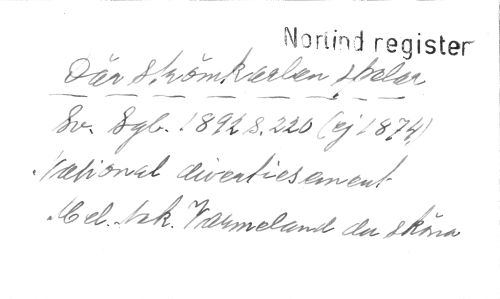 Norlind register
Där strömkarlen spelar
Sv. Sgb. 1892 s. 220 (ej 1874)
National divertissement
Mel. tr. Värmeland du sköna